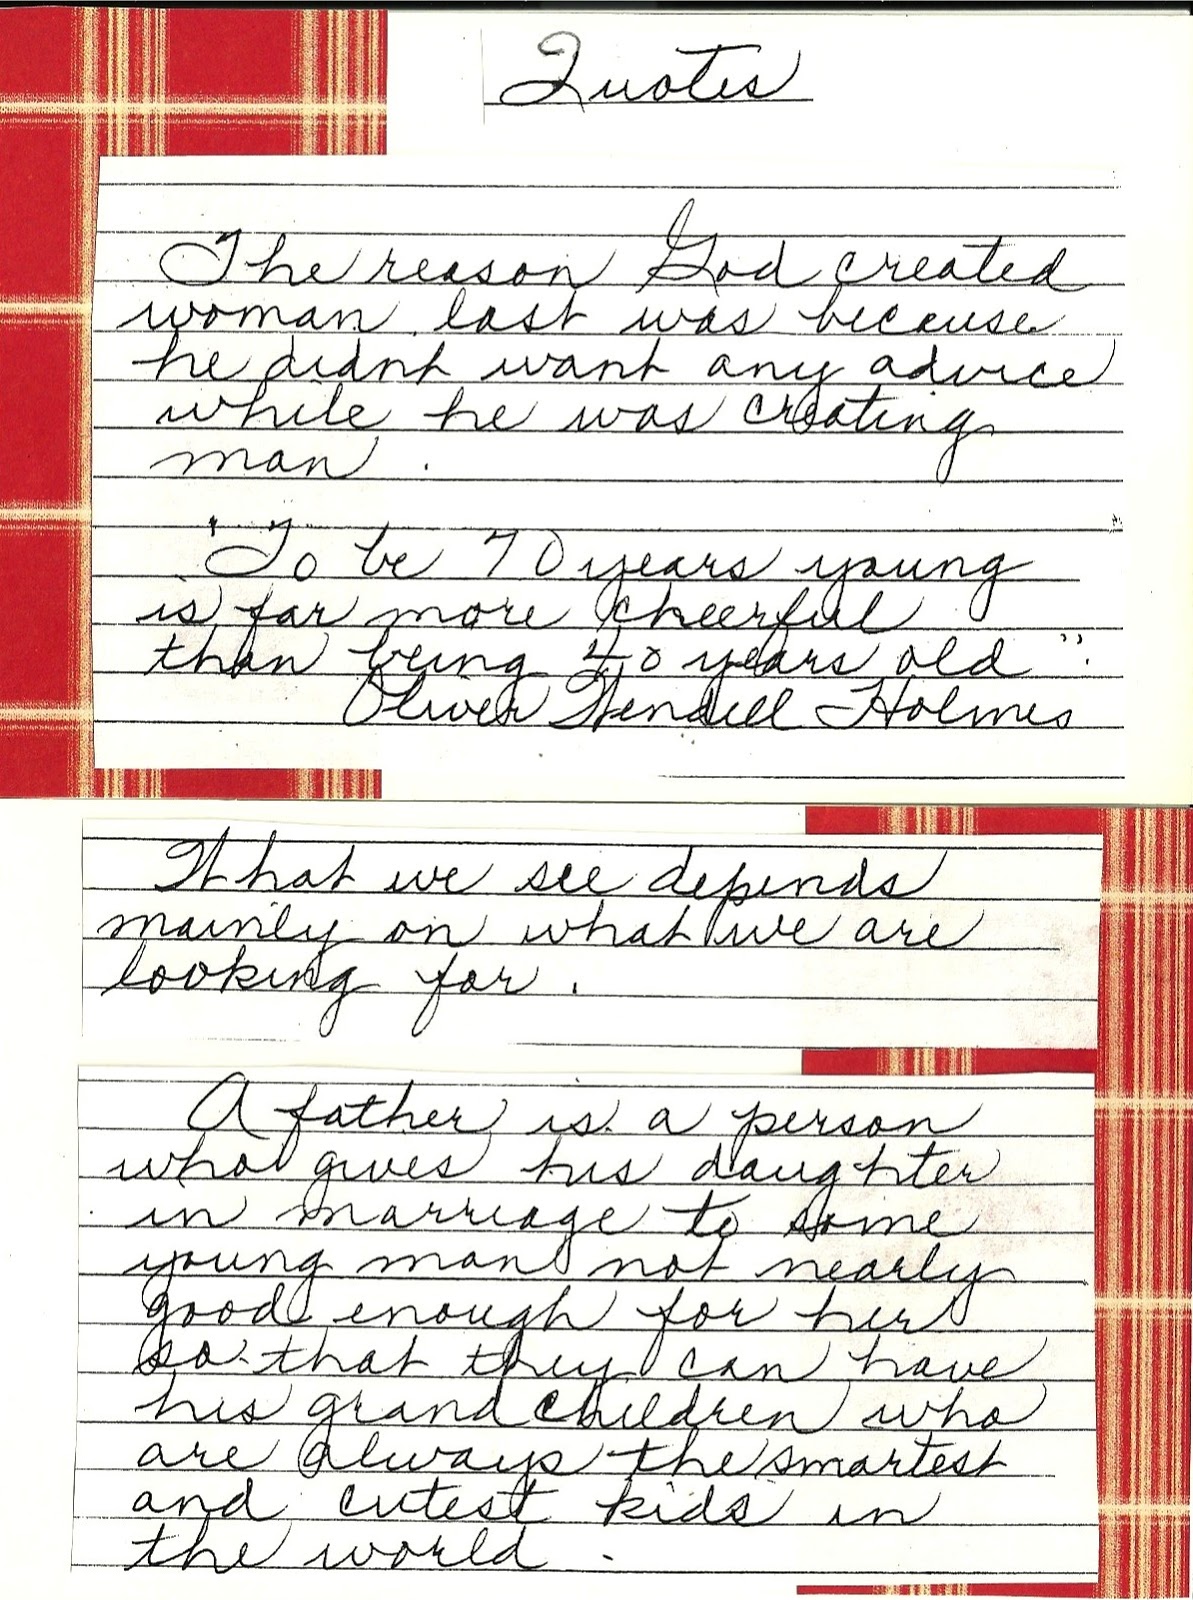 Quotes
The reason God created
woman last was because
he didnt want any advice
while he was creating
man.
"To be 70 years young
is far more cheerful
than being 40 years old".
Oliver Wendell Holmes
What we see depends
mainly on what we are
looking for.
A father is a person
who gives his daughter
in marriage to some
young man not nearly
good enough for her
so that they can have
his grandchildren who
are always the smartest
and cutest kids in
the world.